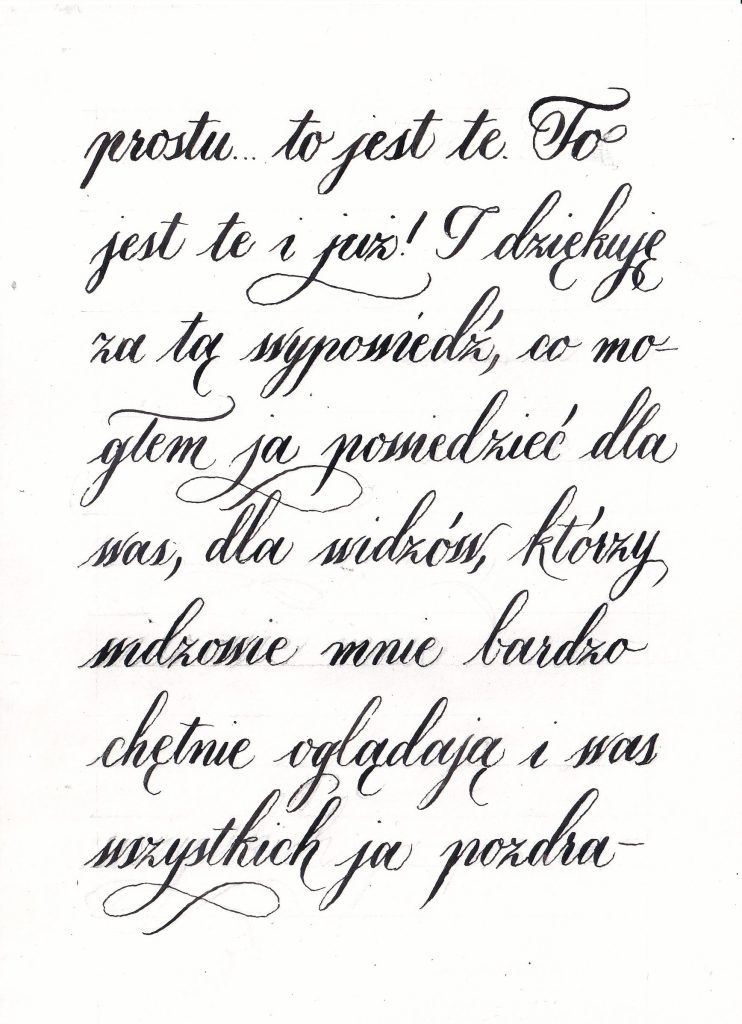 prostu... to jest te. To
jest te i już! I dziękuję
za tą wypowiedź, co mo-
głem ja powiedzieć dla
was, dla widzów, którzy
widzowie mnie bardzo
chętnie oglądają i was
wszystkich ja pozdra-